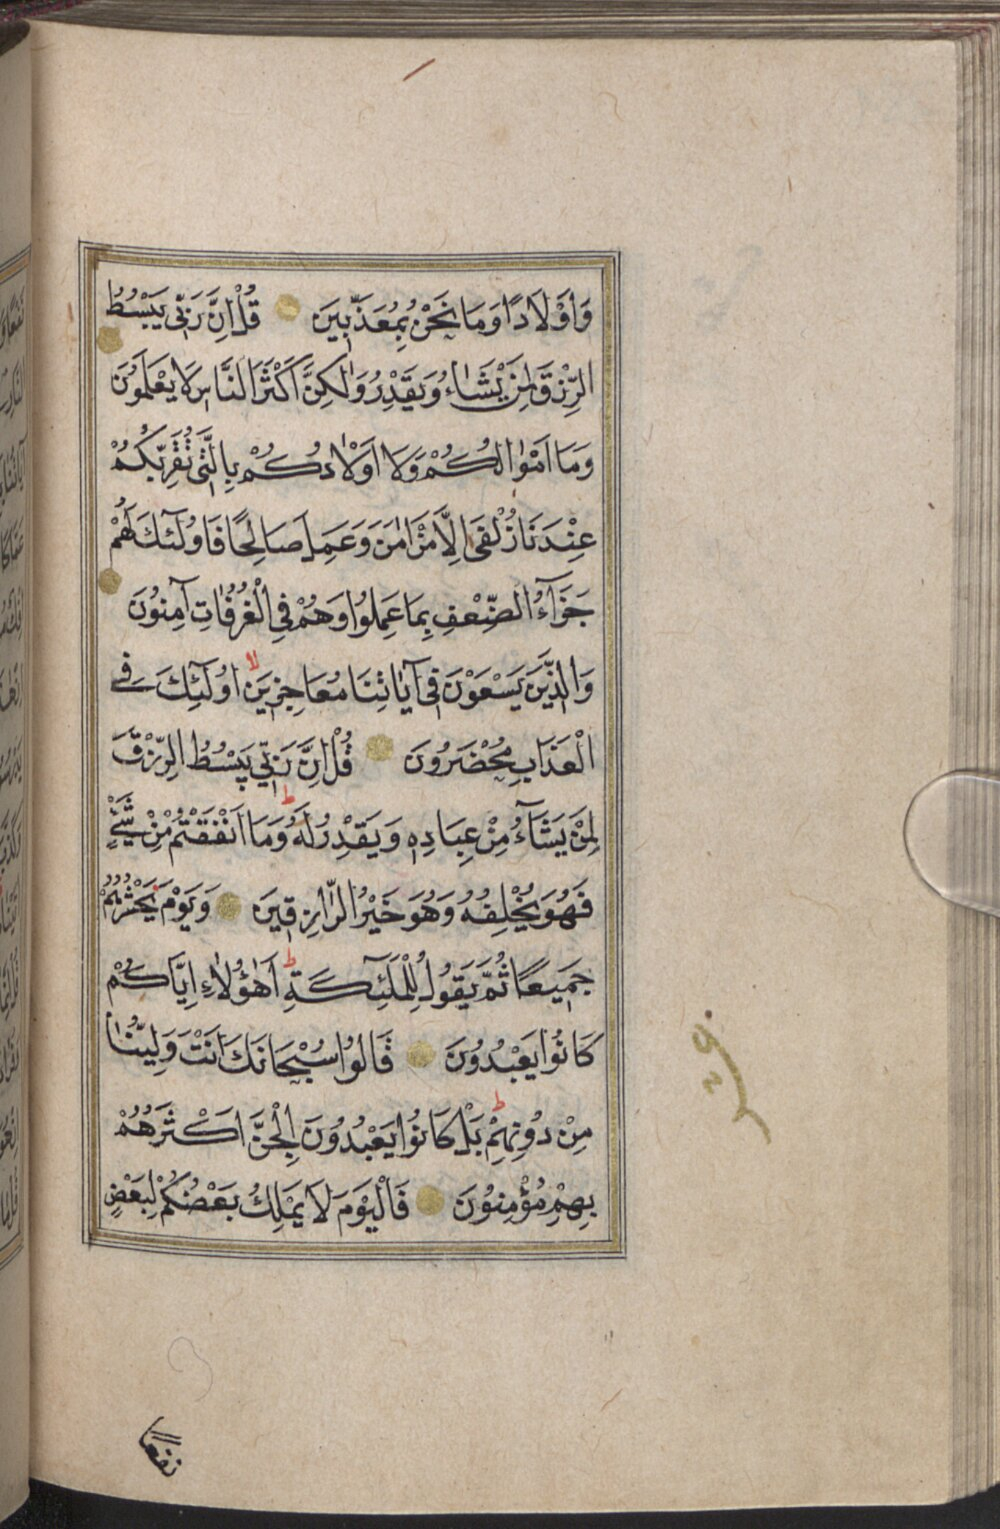 وَاَوْلَادًا وَمَا نَحْنُ بِمُعَذَّبِينَ قُلْ اِنَّ رَبِّي يَبْسُطُ
الرِّزْقَ لِمَنْ يَشَاءُ وَيَقْدِرُ وَلٰكِنَّ اَكْثَرَ النَّاسِ لَا يَعْلَمُونَ
وَمَا اَمْوَالُكُمْ وَلَا اَوْلَادُكُمْ بِالَّتِي تُقَرِّبُكُمْ
عِنْدَنَا زُلْفَى اِلَّا مَنْ اٰمَنَ وَعَمِلَ صَالِحًا فَاُولٰئِكَ لَهُمْ
جَزَآءُ الضِّعْفِ بِمَا عَمِلُوا وَهُمْ فِي الْغُرُفَاتِ آمِنُونَ
وَالَّذِينَ يَسْعَوْنَ فِي آيَاتِنَا مُعَاجِزِينَ اُولٰئِكَ فِي
الْعَذَابِ مُحْضَرُونَ قُلْ اِنَّ رَبِّي يَبْسُطُ الرِّزْقَ
لِمَنْ يَشَآءُ مِنْ عِبَادِهِ وَيَقْدِرُ لَهُ وَمَا اَنْفَقْتُمْ مِنْ شَيْءٍ
فَهُوَ يُخْلِفُهُ وَهُوَ خَيْرُ الرَّازِقِينَ وَيَوْمَ يَحْشُرُهُمْ
جَمِيعًا ثُمَّ يَقُولُ لِلْمَلٰئِكَةِ اَهٰؤُلَاءِ اِيَّاكُمْ
كَانُوا يَعْبُدُونَ قَالُوا سُبْحَانَكَ اَنْتَ وَلِيُّنَا
مِنْ دُونِهِمْ بَلْ كَانُوا يَعْبُدُونَ الْجِنَّ اَكْثَرُهُمْ
بِهِمْ مُؤْمِنُونَ فَالْيَوْمَ لَا يَمْلِكُ بَعْضُكُمْ لِبَعْضٍ
نفعا